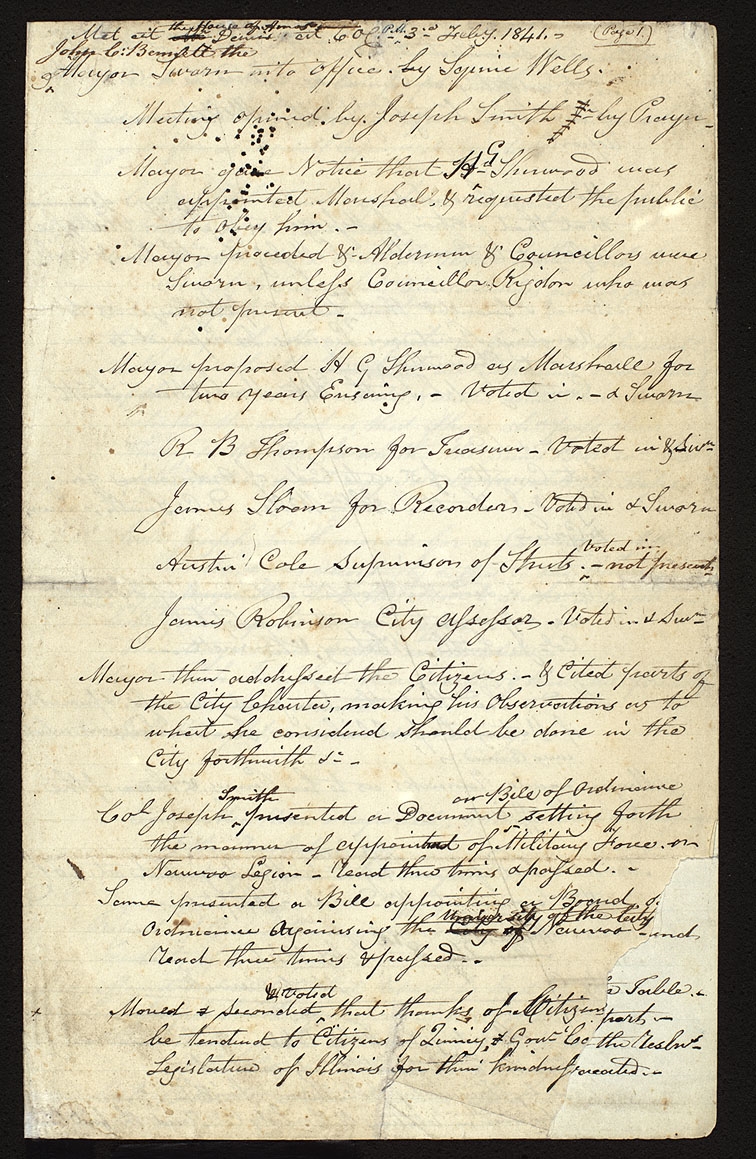 Met at the House of Amos Davis at 6 OC P.M. 3rd Feby. 1841. (Page 1.)
John C: Bennett the
Mayor Sworn into office by Squire Wells.
Meeting opened by Joseph Smith - by Prayer -
Mayor gave Notice that H G Sherwood was
appointed Marshal. & requested the public
to obey him. -
Mayor proceeded & Aldermen & Councillors were
Sworn, unless Councillor Rigdon who was
not present -
Mayor proposed H G Sherwood as Marshall for
two years Ensuing, - Voted in. - & Sworn
R B Thompson for Treasurer - Voted in & Swn
James Sloan for Recorder - Voted in & Sworn
Austin Cole Supervisor of Streets. Voted in - not present
James Robinson City assessor - Voted in & Swn
Mayor then addressed the Citizens. - & Cited parts of
the City Charter, making his Observations as to
what he considered should be done in the
City forthwith &c -
Col. Joseph Smith presented a Document or Bill of Ordinance setting forth
the manner of appointed of Military Force or
Nauvoo Legion - read three times & passed. -
Same presented a Bill appointing a Board, &
Ordinance Organising the University of the City of Nauvoo - and
read three times & passed. -
Table -
Moved & Seconded & Voted that thanks of Citizens
part -
be tendered to Citizens of Quincy, & Govr. the
Legislature of Illinois for their kindness -